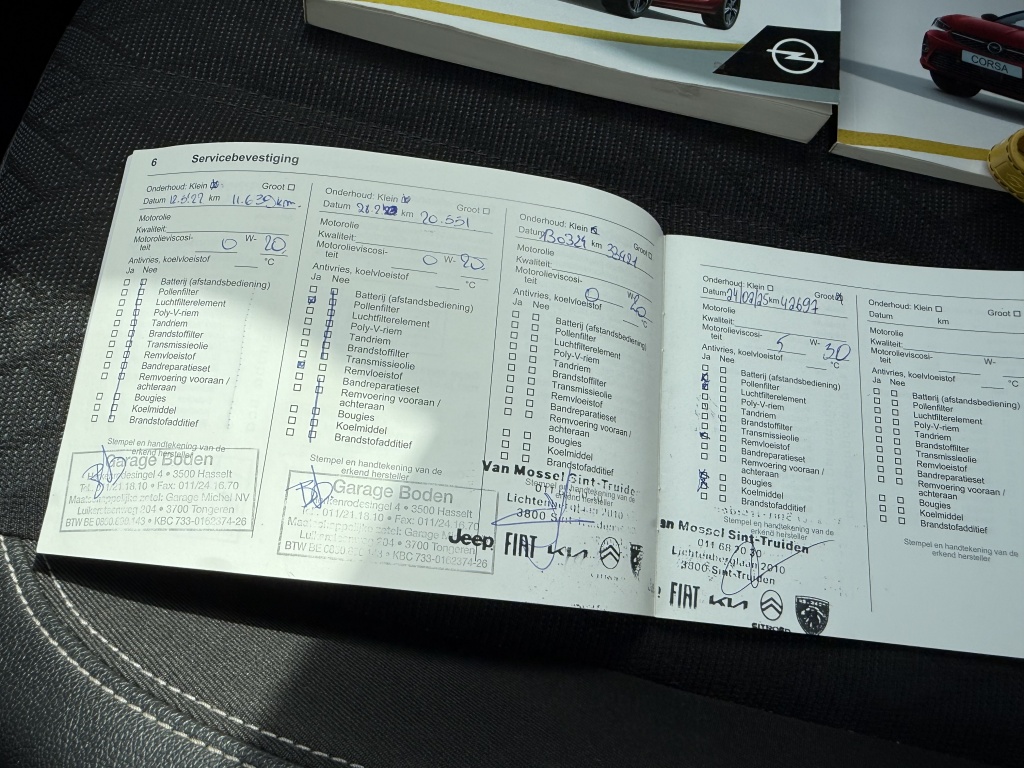 CORSA
6 Servicebevestiging
Onderhoud: Klein Groot
Datum 12.5.22 km 11.639 km.
Motorolie
Kwaliteit:
Motorolieviscosi-
teit 0 W- 20
Antivries, koelvloeistof °C
Ja Nee
Batterij (afstandsbediening)
Pollenfilter
Luchtfilterelement
Poly-V-riem
Tandriem
Brandstoffilter
Transmissieolie
Remvloeistof
Bandreparatieset
Remvoering vooraan /
achteraan
Bougies
Koelmiddel
Brandstofadditief
Stempel en handtekening van de
erkend hersteller
Garage Boden
3500 Hasselt
Garage Michel NV
204 • 3700 Tongeren
KBC 733-0162374-26
Onderhoud: Klein Groot
Datum km 20.551
Motorolie
Kwaliteit:
Motorolieviscosi-
teit 0 W- 20
Antivries, koelvloeistof °C
Ja Nee
Batterij (afstandsbediening)
Pollenfilter
Luchtfilterelement
Poly-V-riem
Tandriem
Brandstoffilter
Transmissieolie
Remvloeistof
Bandreparatieset
Remvoering vooraan /
achteraan
Bougies
Koelmiddel
Brandstofadditief
Stempel en handtekening van de
erkend hersteller
Garage Boden
4 • 3500 Hasselt
011/21.18.10 • Fax: 011/24.16.70
204 • 3700 Tongeren
KBC 733-0162374-26
Onderhoud: Klein Groot
Datum km
Motorolie
Kwaliteit:
Motorolieviscosi-
teit 0 W- 20
Antivries, koelvloeistof °C
Ja Nee
Batterij (afstandsbediening)
Pollenfilter
Luchtfilterelement
Poly-V-riem
Tandriem
Brandstoffilter
Transmissieolie
Remvloeistof
Bandreparatieset
Remvoering vooraan /
achteraan
Bougies
Koelmiddel
Brandstofadditief
Stempel en handtekening van de
erkend hersteller
Van Mossel
3800
Jeep FIAT KIA
Onderhoud: Klein Groot
Datum 24/02/25 km 42697
Motorolie
Kwaliteit:
Motorolieviscosi-
teit 5 W- 30
Antivries, koelvloeistof °C
Ja Nee
Batterij (afstandsbediening)
Pollenfilter
Luchtfilterelement
Poly-V-riem
Tandriem
Brandstoffilter
Transmissieolie
Remvloeistof
Bandreparatieset
Remvoering vooraan /
achteraan
Bougies
Koelmiddel
Brandstofadditief
Stempel en handtekening van de
erkend hersteller
an Mossel Sint-Truiden
011 68 20 30
Lichtenberglaan 2010
3800 Sint-Truiden
FIAT KIA
CITROËN
Onderhoud: Klein Groot
Datum km
Motorolie
Kwaliteit:
Motorolieviscosi-
teit W-
Antivries, koelvloeistof °C
Ja Nee
Batterij (afstandsbediening)
Pollenfilter
Luchtfilterelement
Poly-V-riem
Tandriem
Brandstoffilter
Transmissieolie
Remvloeistof
Bandreparatieset
Remvoering vooraan /
achteraan
Bougies
Koelmiddel
Brandstofadditief
Stempel en handtekening van de
erkend hersteller